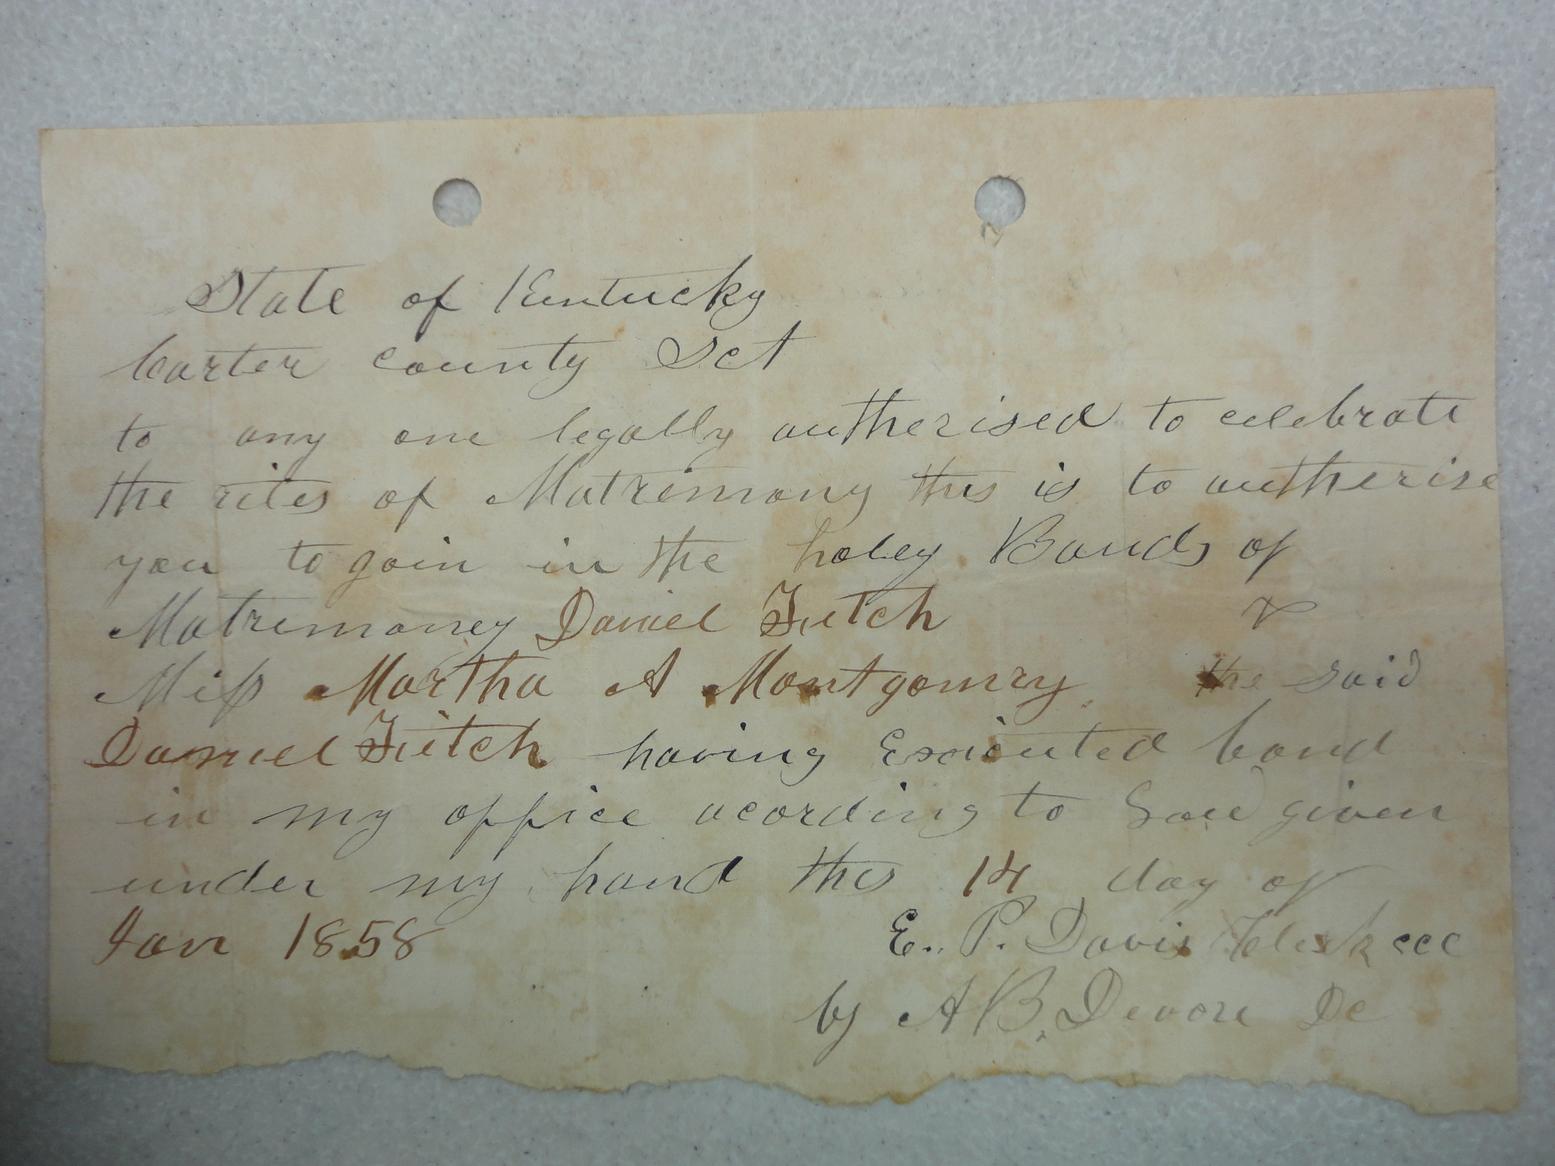 State of Kentucky
Carter county Sct
to any one legally autherised to celebrate
the rites of Matrimony this is to autherise
you to goin in the holey Bands of
Matremoney Daniel Fitch &
Miss Martha A Montgomry the said
Daniel Fitch having Executed bond
in my office acording to Law given
under my hand this 14 day of
Jan 1858 E. P. Davis Clerk ccc
by A B. Devore Dc